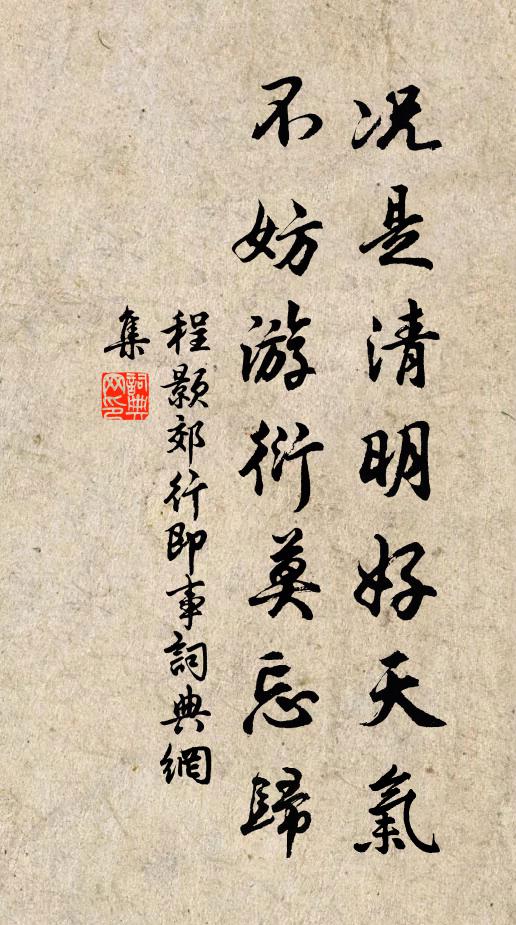 况是清明好天氣
不妨游衍莫忘歸
程颢郊行即事詞典網
集
詞典
网印